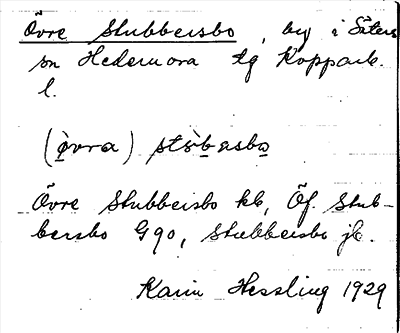 Övre Stubbersbo, by i Säters
sn Hedemora tg Kopparb.
l.
(övra) stubasbo
Övre Stubbersbo kb, Öf. Stub-
bersbo G90, Stubbersbo jb.
Karin Hessling 1929